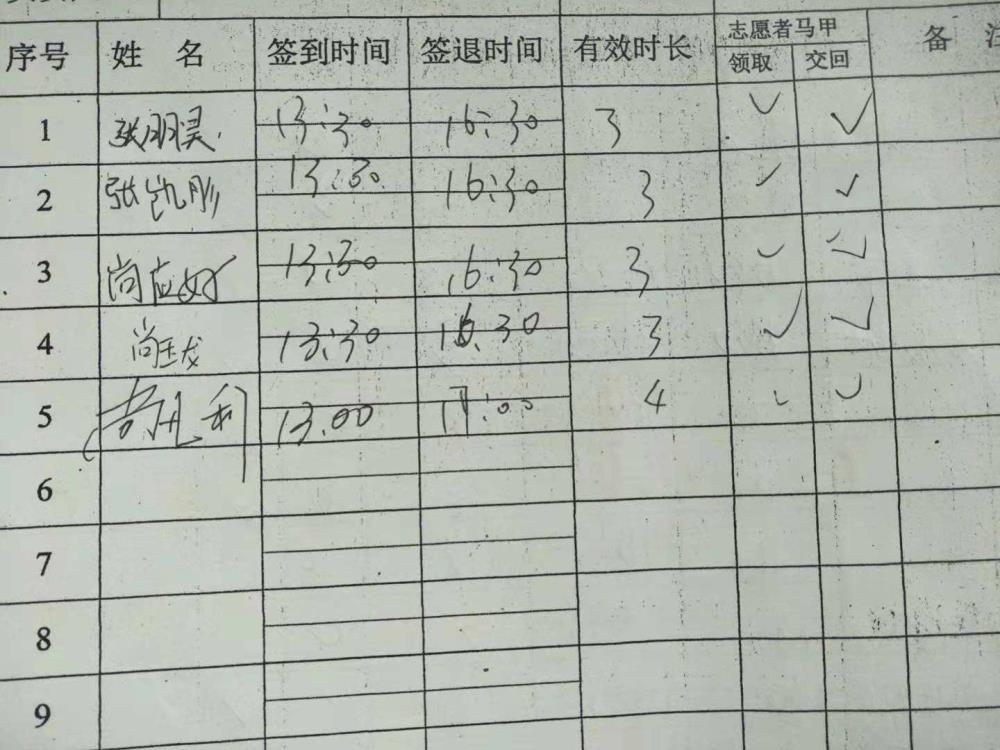 序号 姓 名 签到时间 签退时间 有效时长 志愿者马甲 备
领取 交回
1 张朋昊 13:30 16:30 3 ✓ ✓
2 张凯彤 13:30 16:30 3 ✓ ✓
3 尚应好 13:30 16:30 3 ✓ ✓
4 尚玉龙 13:30 16:30 3 ✓ ✓
5 13:00 17:00 4 ✓ ✓
6
7
8
9